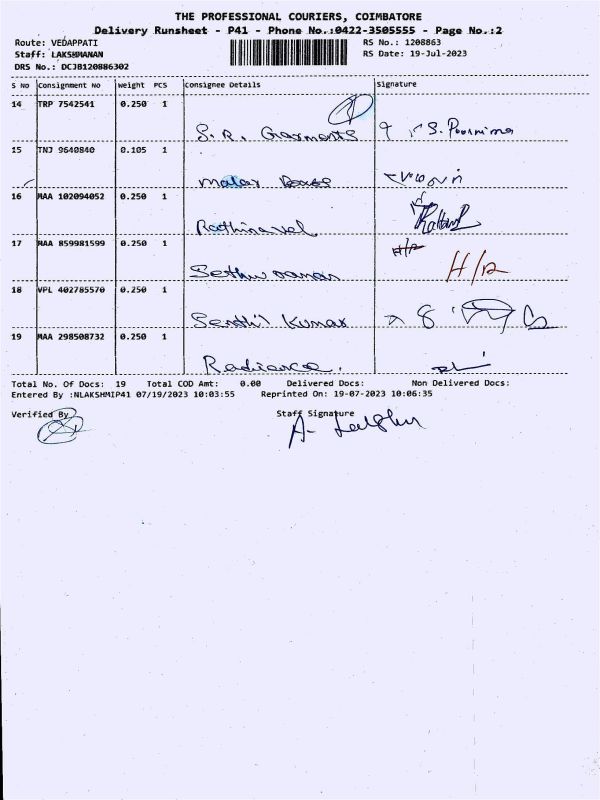 THE PROFESSIONAL COURIERS, COIMBATORE
Delivery Runsheet - P41 - Phone No.:0422-3505555 - Page No.:2
Route: VEDAPPATI
Staff: LAKSHMANAN
DRS No.: DCJB120886302
RS No.: 1208863
RS Date: 19-Jul-2023
S No Consignment No Weight PCS Consignee Details Signature
14 TRP 7542541 0.250 1
S. R. Garments S. Poornima
15 TNJ 9640840 0.105 1
malar
16 MAA 102094052 0.250 1
Rathinavel
17 MAA 859981599 0.250 1 H/R
Sethuraman H/R
18 VPL 402785570 0.250 1
Senthil Kumar
19 MAA 298508732 0.250 1
Radiance.
Total No. Of Docs: 19 Total COD Amt: 0.00 Delivered Docs: Non Delivered Docs:
Entered By :NLAKSHMIP41 07/19/2023 10:03:55 Reprinted On: 19-07-2023 10:06:35
Verified By Staff Signature